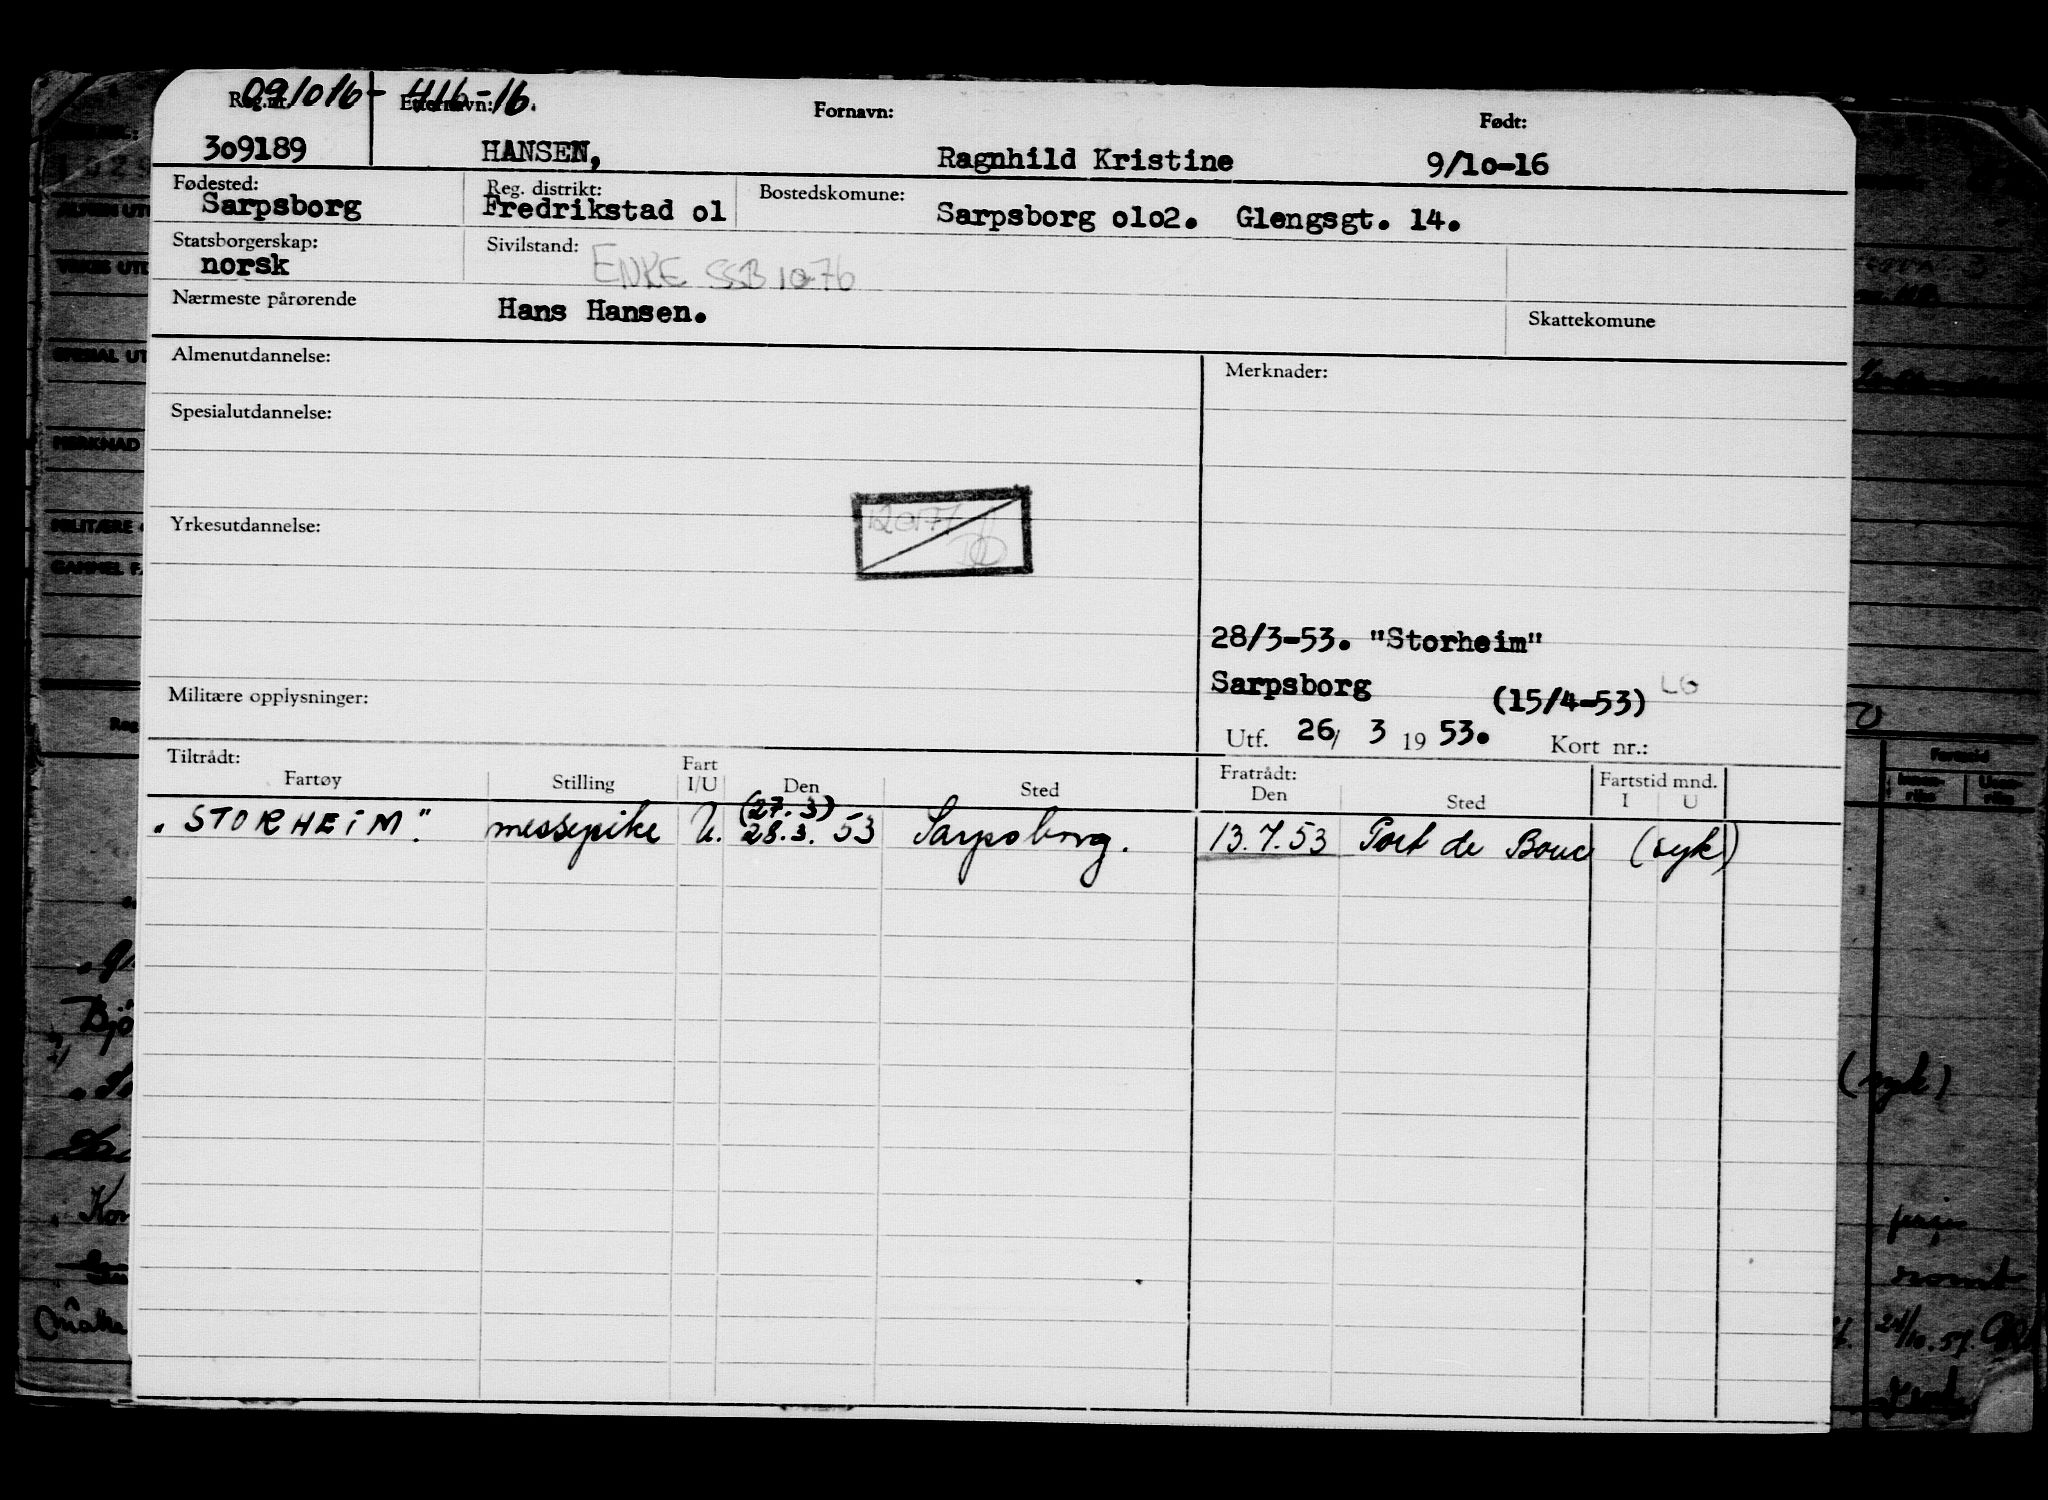 091016-41616.
Reg.nr. Etternavn: Fornavn: Født:
309189 HANSEN, Ragnhild Kristine 9/10-16
Fødested: Reg. distrikt: Bostedskomune:
Sarpsborg Fredrikstad 01 Sarpsborg 0102. Glengsgt. 14.
Statsborgerskap: Sivilstand:
norsk ENKE SSB 1076
Nærmeste pårørende Hans Hansen. Skattekomune
Almenutdannelse: Merknader:
Spesialutdannelse:
Yrkesutdannelse: 120177
28/3-53. "Storheim"
Sarpsborg (15/4-53) LG
Militære opplysninger:
Utf. 26/ 3 1953. Kort nr.:
Tiltrådt: Fratrådt:
Fartøy Stilling Fart I/U Den Sted Den Sted Fartstid mnd. I U
(27.3)
"STORHEIM." messepike U. 28.3.53 Sarpsborg. 13.7.53 Port de Bouc (syk)
(syk)